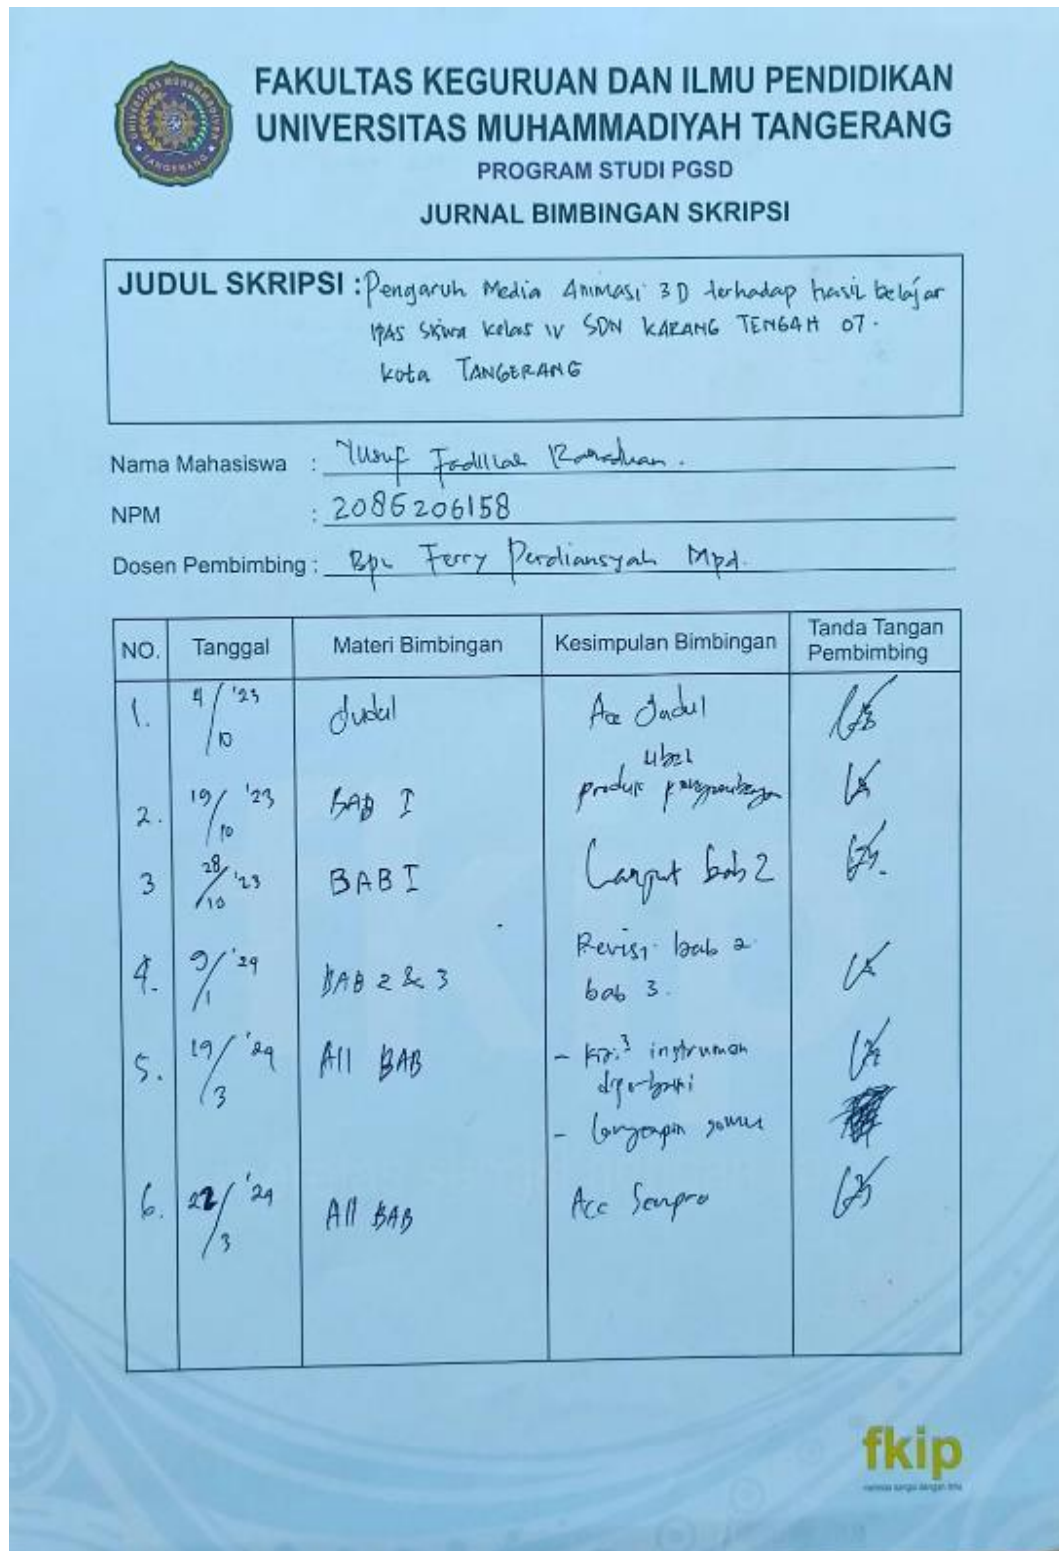 UNIVERSITAS MUHAMMADIYAH
TANGERANG
FAKULTAS KEGURUAN DAN ILMU PENDIDIKAN
UNIVERSITAS MUHAMMADIYAH TANGERANG
PROGRAM STUDI PGSD
JURNAL BIMBINGAN SKRIPSI
JUDUL SKRIPSI : Pengaruh Media Animasi 3D terhadap hasil belajar
IPAS Siswa Kelas IV SDN KARANG TENGAH 07.
Kota TANGERANG
Nama Mahasiswa : Yusuf Fadillah Ramadhan.
NPM : 2086206158
Dosen Pembimbing : Bpk Ferry Perdiansyah Mpd.
NO. Tanggal Materi Bimbingan Kesimpulan Bimbingan Tanda Tangan Pembimbing
1. 4/10 '23 Judul Acc Judul
2. 19/10 '23 BAB I produk
3 28/10 '23 BAB I Lanjut bab 2
4. 9/1 '24 BAB 2 & 3 Revisi bab 2
bab 3.
5. 19/3 '24 All BAB - instrumen
-
6. 22/3 '24 All BAB Acc Sempro
fkip